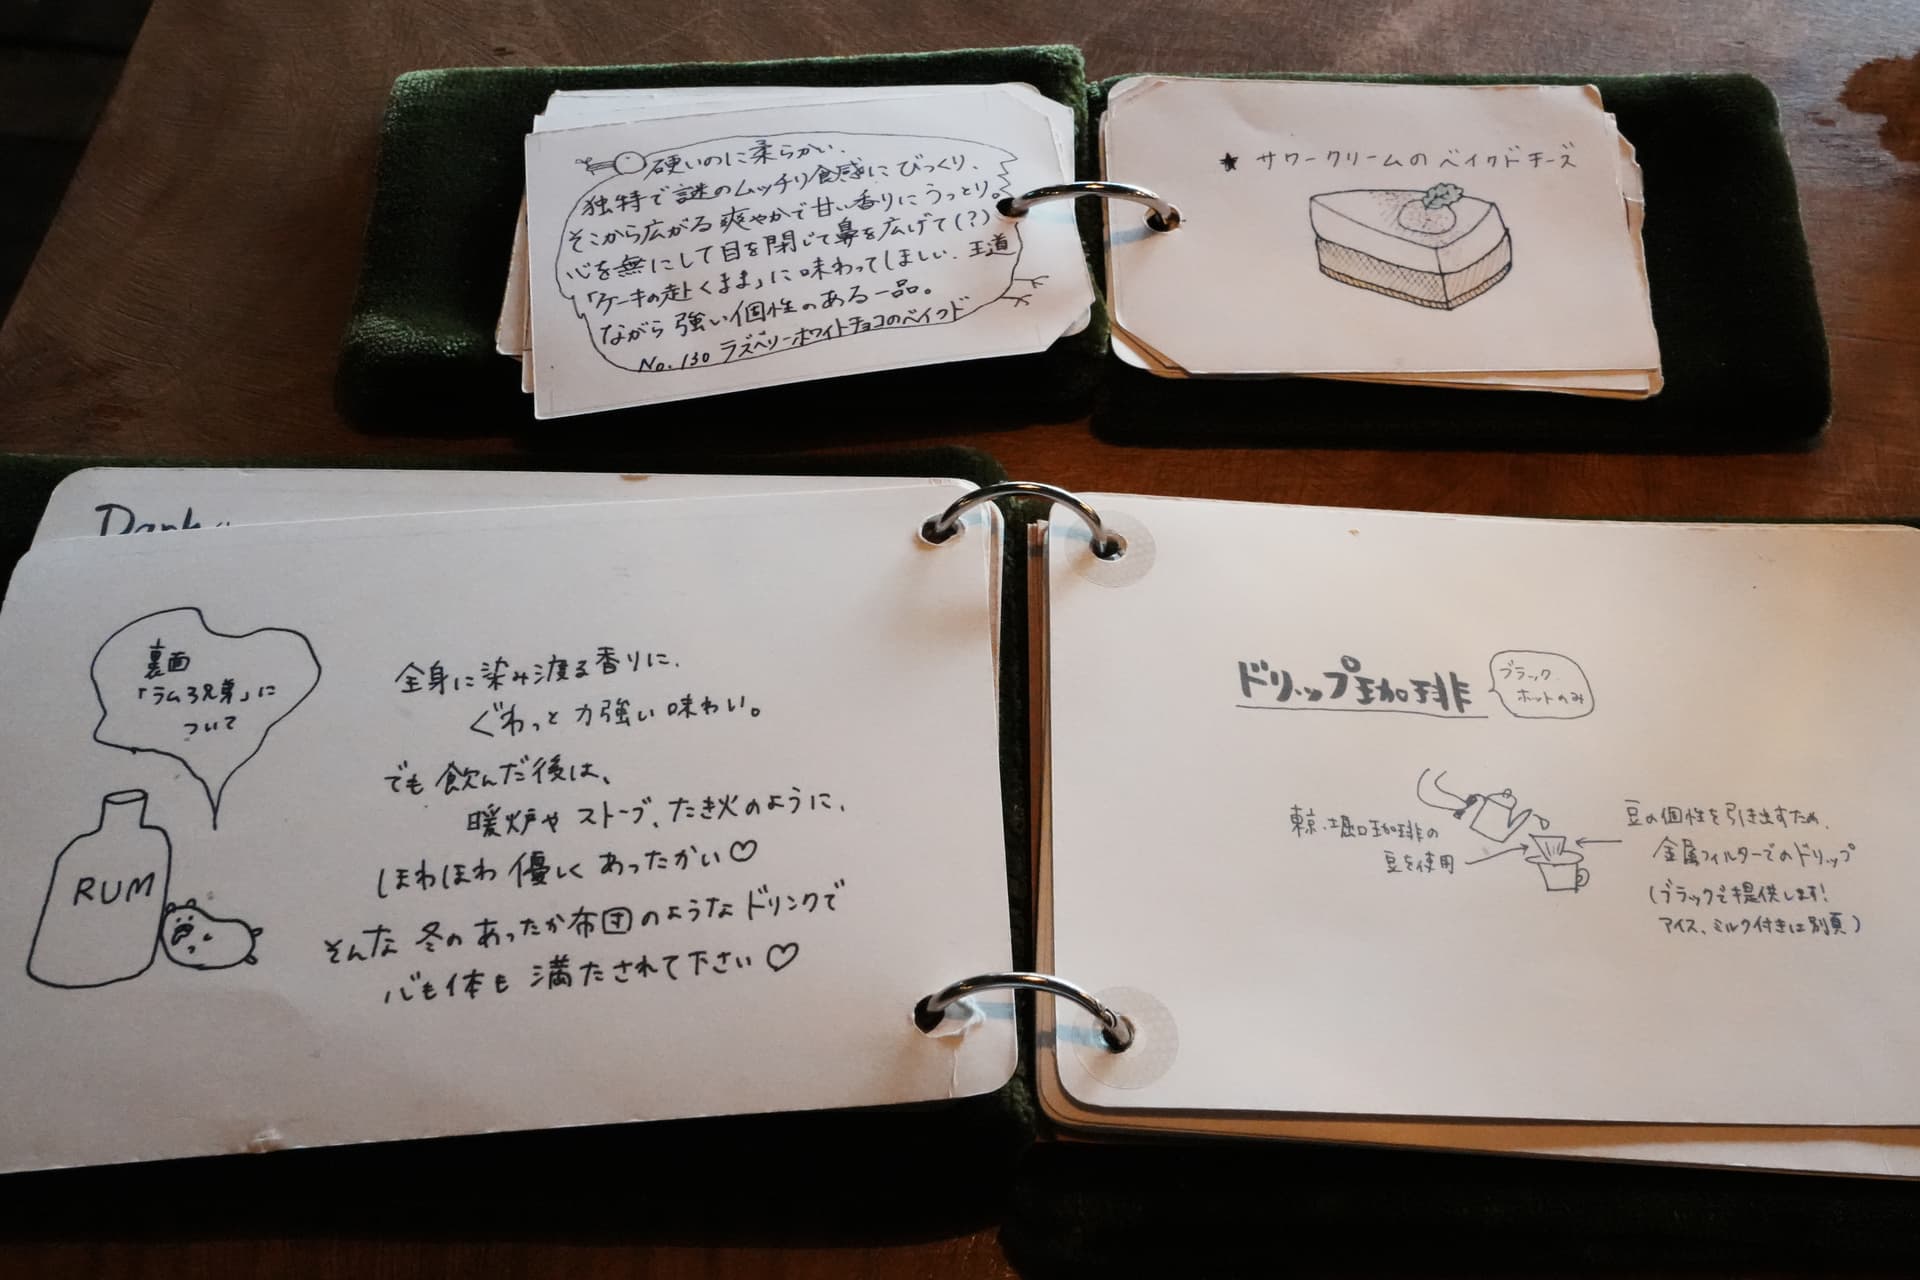 硬いのに柔らかい、
独特で謎のムッチリ食感にびっくり、
そこから広がる爽やかで甘い香りにうっとり。
心を無にして目を閉じて鼻を広げて(?)
「ケーキの赴くまま」に味わってほしい、王道
ながら強い個性のある一品。
No.130 ラズベリーホワイトチョコのベイクド
★ サワークリームのベイクドチーズ
裏面
「ラム3兄弟」に
ついて
RUM
全身に染み渡る香りに、
ぐわっと力強い味わい。
でも飲んだ後は、
暖炉や ストーブ、たき火のように、
ほわほわ 優しく あったかい♡
そんな 冬の あったか布団のような ドリンクで
心も体も 満たされて下さい♡
ドリップ珈琲
ブラック
ホットのみ
東京・堀口珈琲の
豆を使用
豆の個性を引き出すため、
金属フィルターでのドリップ
(ブラックで提供します!
アイス、ミルク付きは別頁)